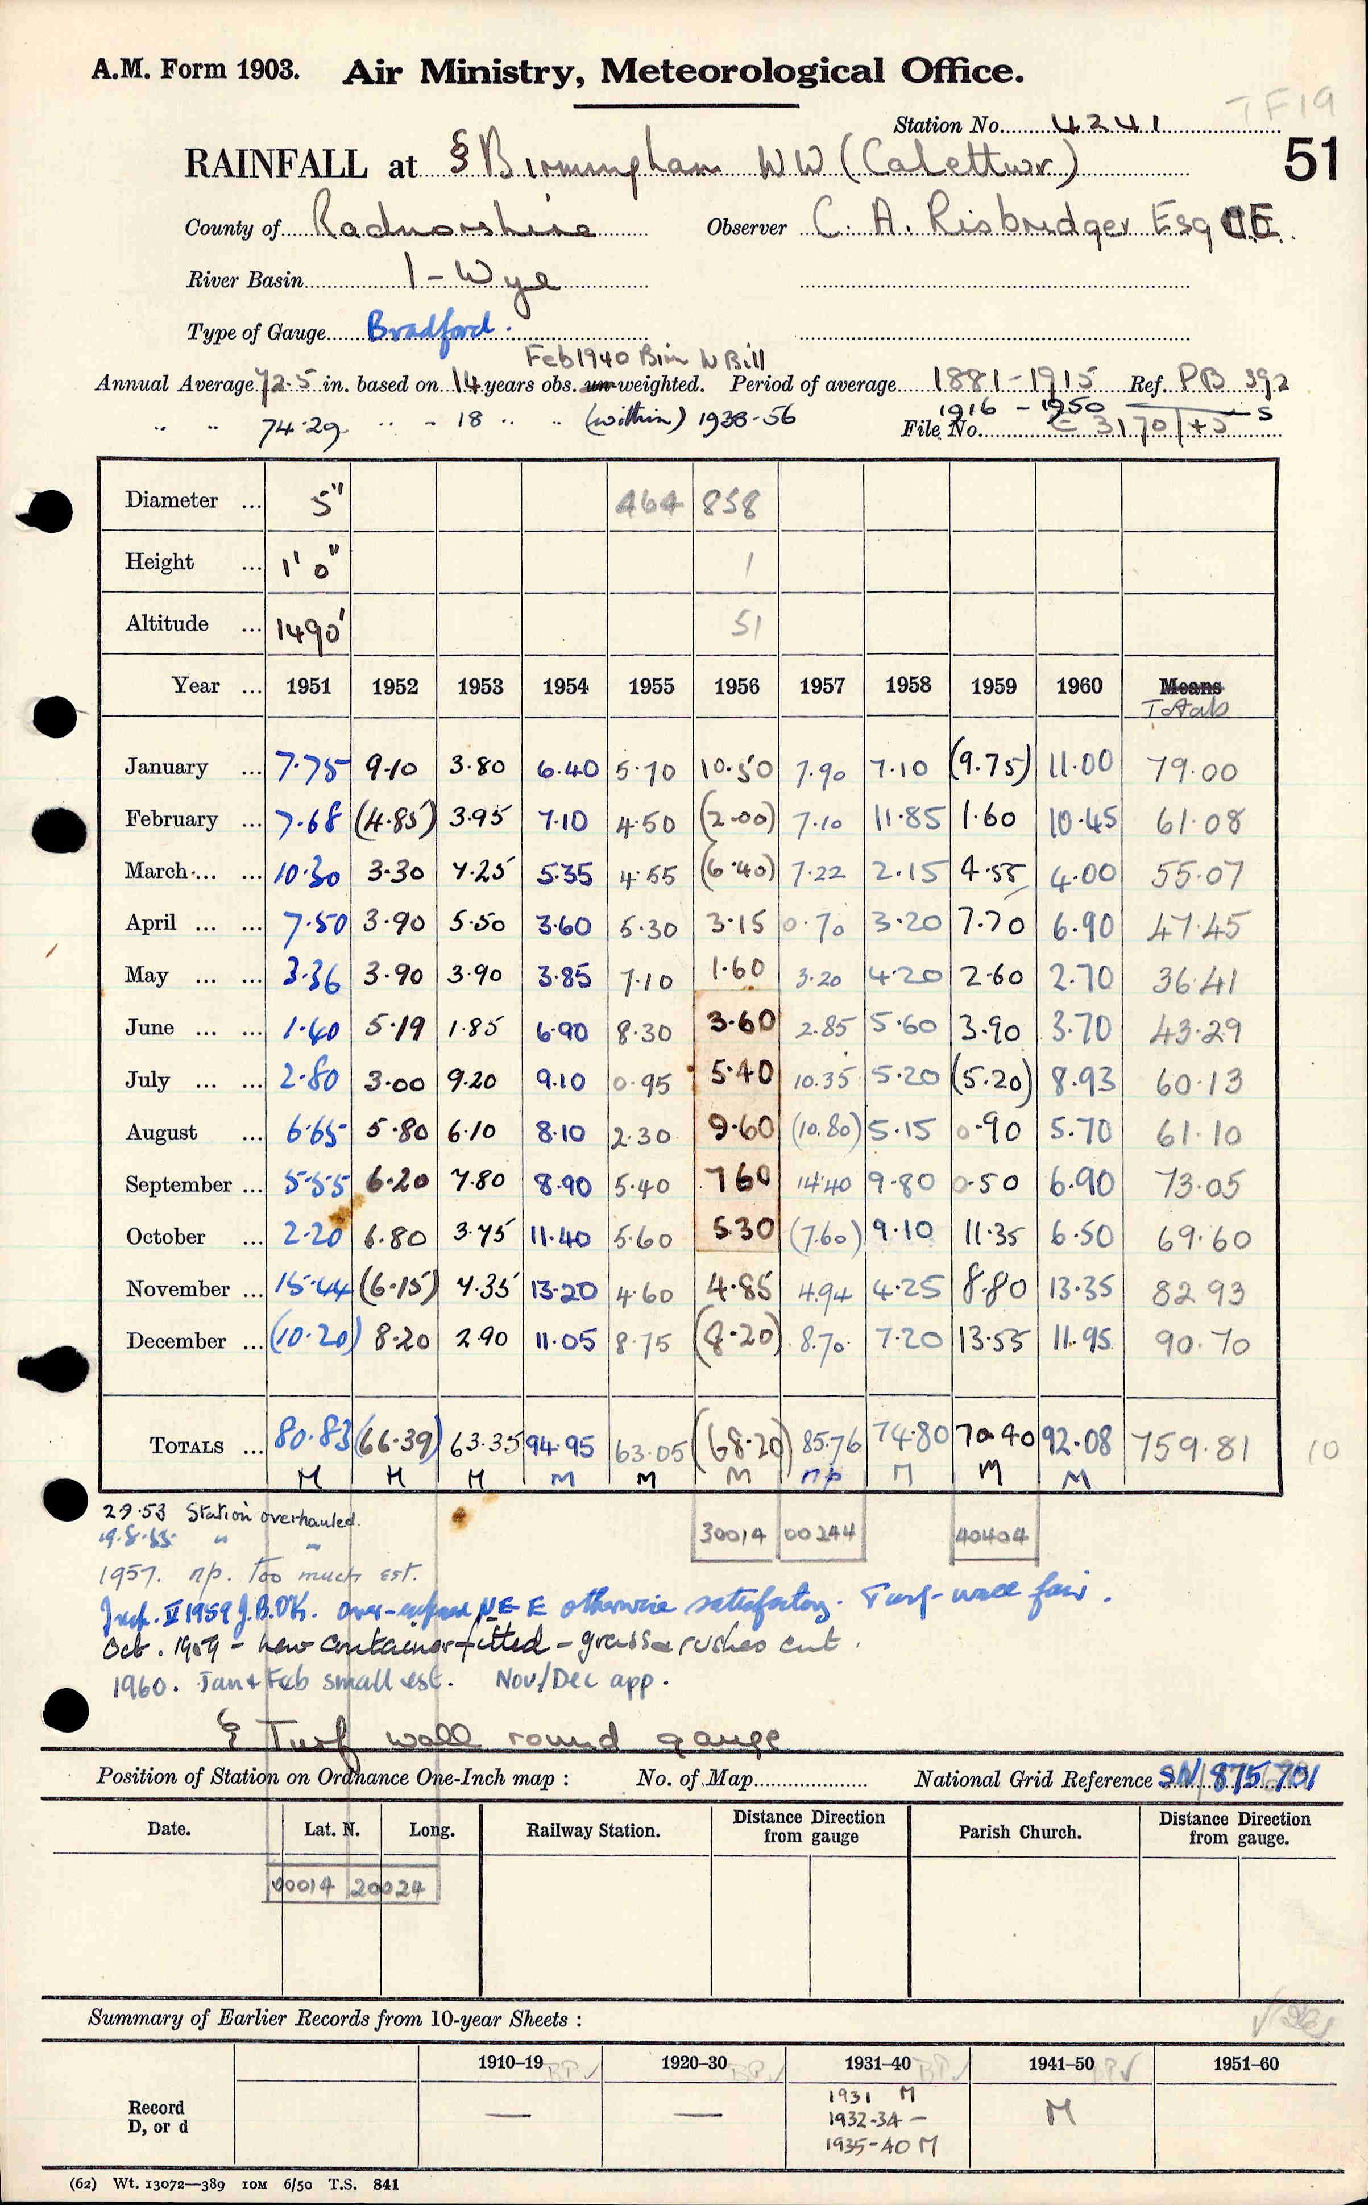 A.M. Form 1903. Air Ministry, Meteorological Office.
TF19
Station No. 4241
51
RAINFALL at § Birmingham WW (Calettwr)
County of Radnorshire Observer C. A. Risbridger Esq
River Basin 1 - Wye
Type of Gauge Bradford.
Feb 1940 Birm W Bill
Annual Average 72.5 in. based on 14 years obs. un-weighted. Period of average 1881-1915 Ref. PB 392
" " 74.29 " " - 18 " " (within) 1938-56 1916 - 1950 S
File No.
Diameter ... 5" 464 858
Height ... 1' 0" 1
Altitude ... 1490' 51
Year ... 1951 1952 1953 1954 1955 1956 1957 1958 1959 1960 Means
Totals
January ... 7.75 9.10 3.80 6.40 5.70 10.50 7.90 7.10 (9.75) 11.00 79.00
February ... 7.68 (4.85) 3.95 7.10 4.50 (2.00) 7.10 11.85 1.60 10.45 61.08
March ... ... 10.30 3.30 7.25 5.35 4.55 (6.40) 7.22 2.15 4.55 4.00 55.07
April ... ... 7.50 3.90 5.50 3.60 5.30 3.15 0.70 3.20 7.70 6.90 47.45
May ... ... 3.36 3.90 3.90 3.85 7.10 1.60 3.20 4.20 2.60 2.70 36.41
June ... ... 1.40 5.19 1.85 6.90 8.30 3.60 2.85 5.60 3.90 3.70 43.29
July ... ... 2.80 3.00 9.20 9.10 0.95 5.40 10.35 5.20 (5.20) 8.93 60.13
August ... 6.65 5.80 6.10 8.10 2.30 9.60 (10.80) 5.15 0.90 5.70 61.10
September ... 5.55 6.20 7.80 8.90 5.40 7.60 14.40 9.80 0.50 6.90 73.05
October ... 2.20 6.80 3.75 11.40 5.60 5.30 (7.60) 9.10 11.35 6.50 69.60
November ... 15.44 (6.15) 7.35 13.20 4.60 4.85 4.94 4.25 8.80 13.35 82.93
December ... (10.20) 8.20 2.90 11.05 8.75 (8.20) 8.70 7.20 13.55 11.95 90.70
TOTALS ... 80.83 (66.39) 63.35 94.95 63.05 (68.20) 85.76 74.80 70.40 92.08 759.81 10
M M M M M M np M M M
2.9.53 Station overhauled. 30014 00244 40404
19.8.55 " "
1957. np. Too much est.
Insp. V 1959 J.B.O'K. over-exposed NE E otherwise satisfactory. Turf-wall fair.
Oct. 1959 - new container fitted - grass & rushes cut.
1960. Jan + Feb small est. Nov/Dec app.
§ Turf wall round gauge
Position of Station on Ordnance One-Inch map : No. of Map National Grid Reference SN 875 701
Date. Lat. N. Long. Railway Station. Distance Direction from gauge Parish Church. Distance Direction from gauge.
00014 20024
Summary of Earlier Records from 10-year Sheets :
1910–19 1920–30 1931–40 1941–50 1951–60
Record D, or d — — 1931 M M
1932-34 -
1935-40 M
(62) Wt. 13072—389 10M 6/50 T.S. 841